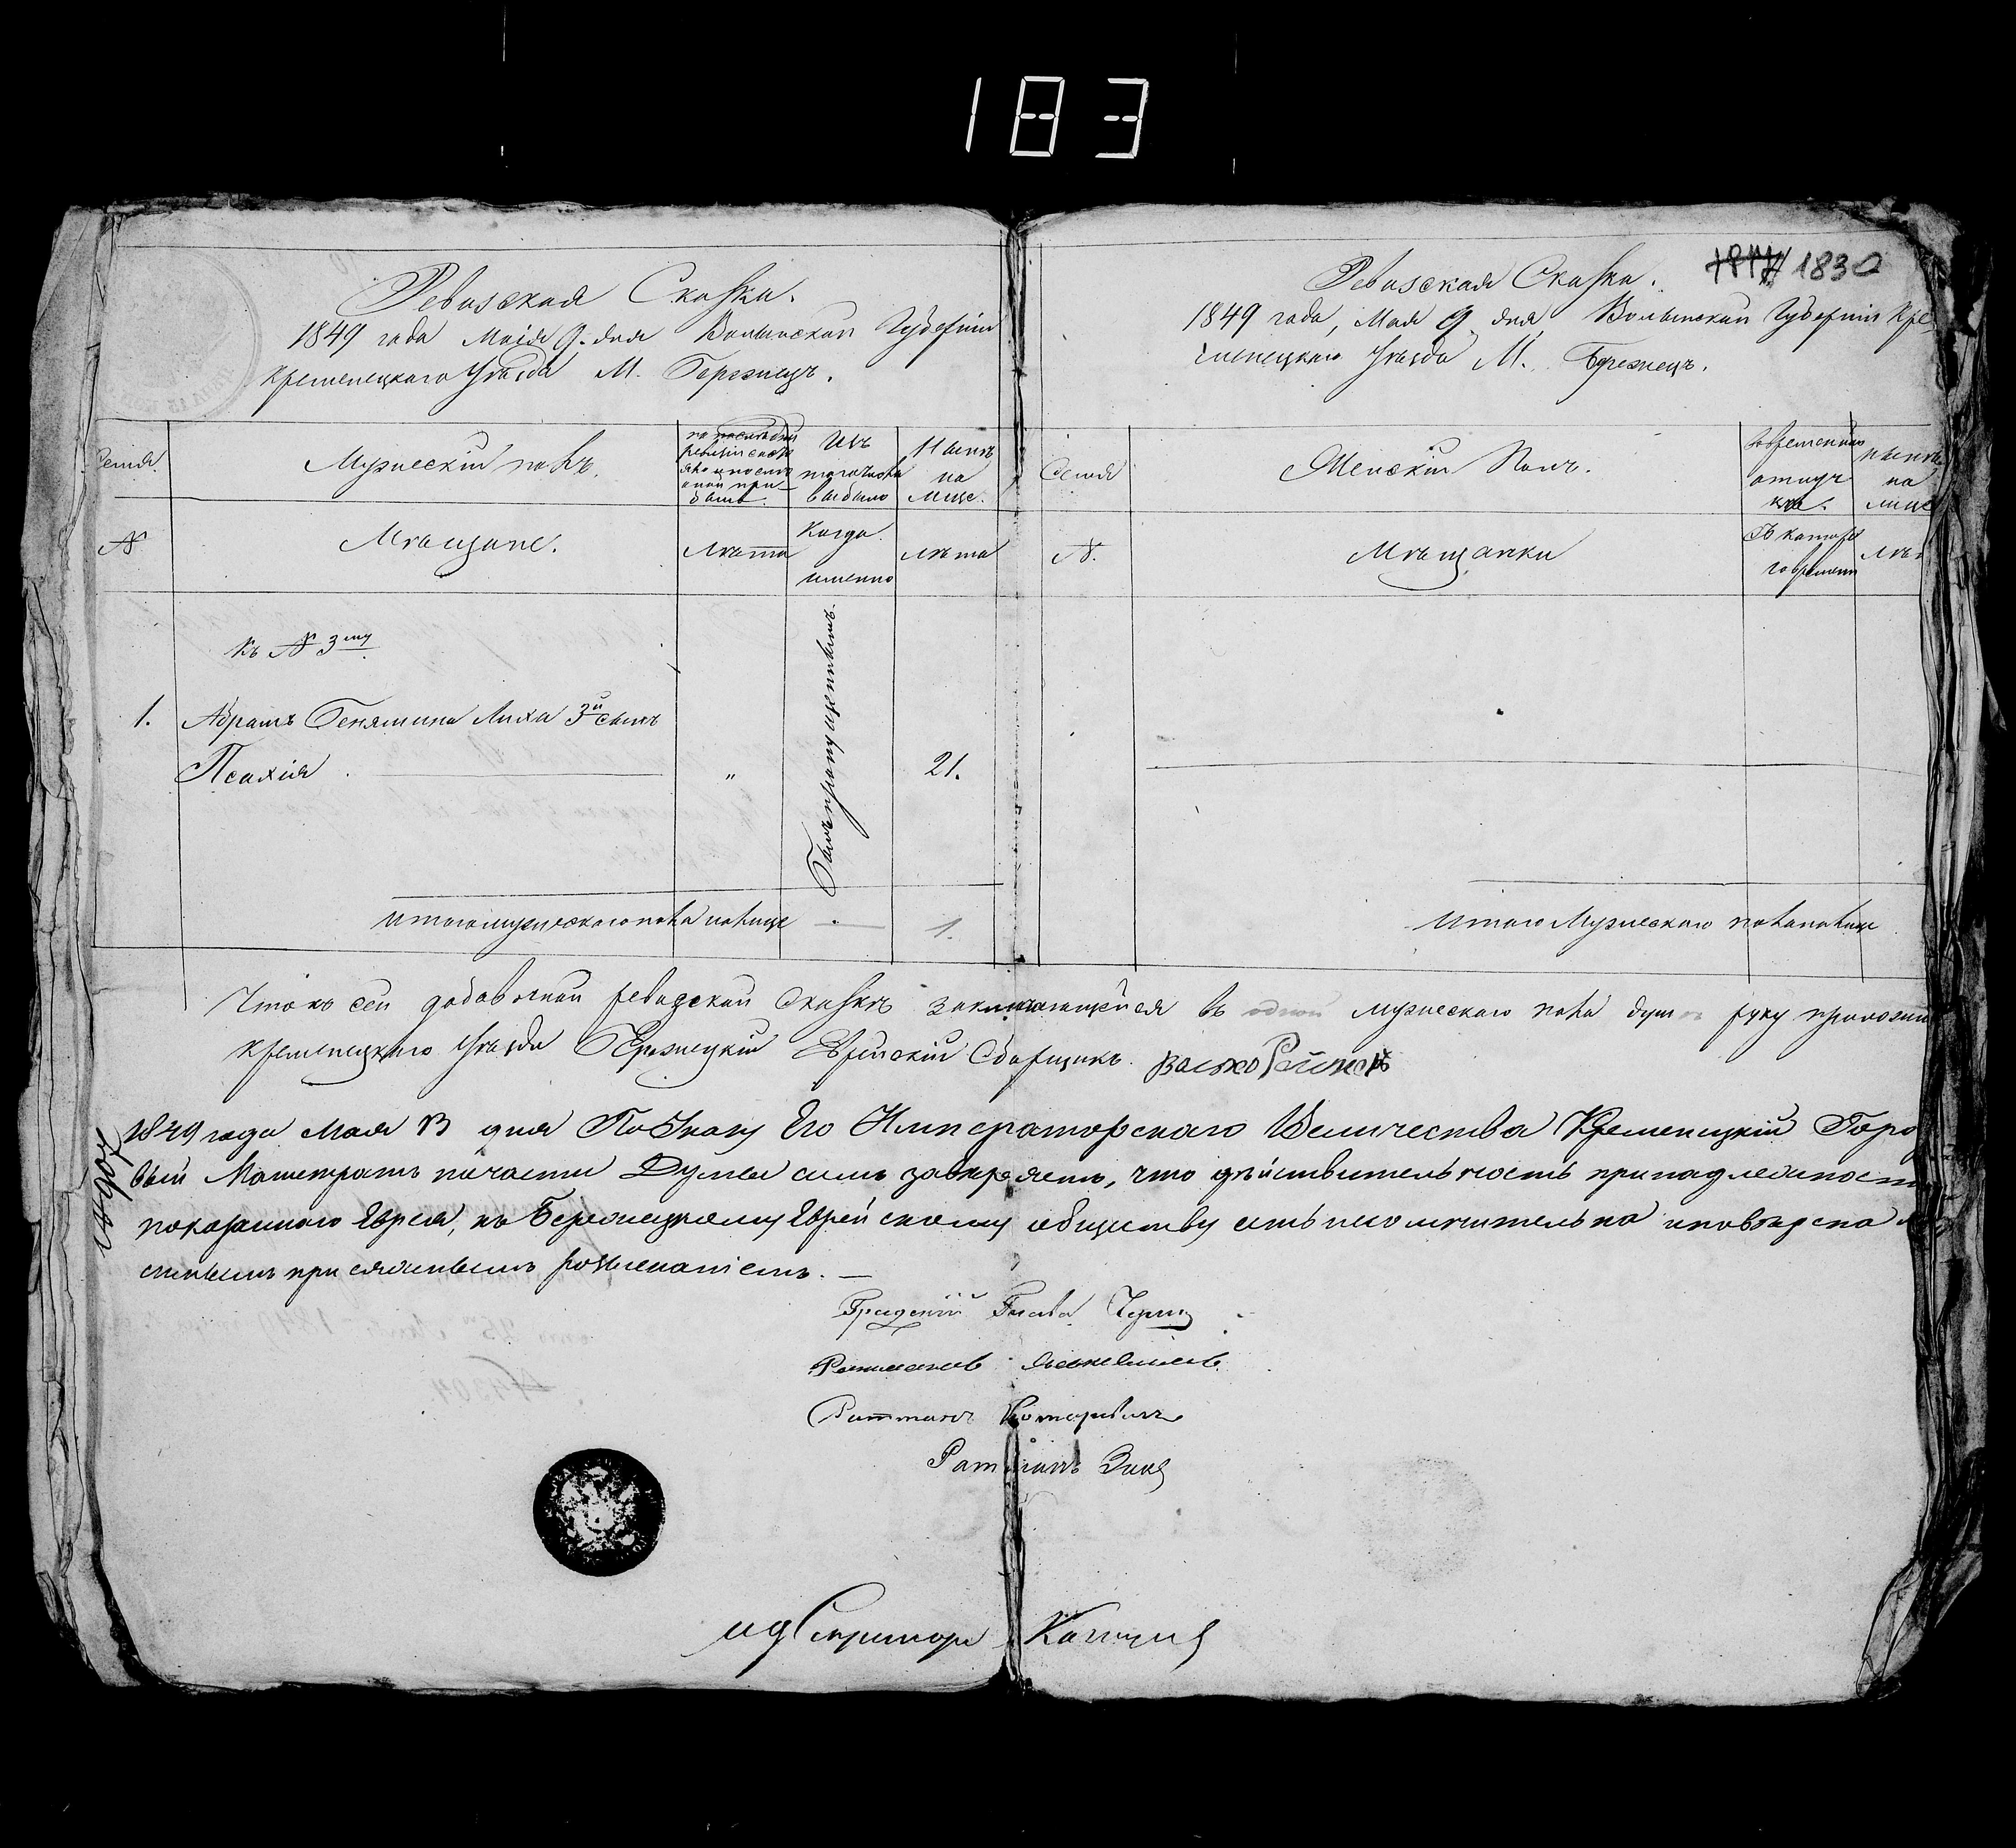 183
Ревизская Сказка.
1849 года Маія 9. дня Волынской Губерніи
Кременецкаго Уѣзда М. Бережецъ.
Семія.
Мужескій полъ.
по последней
ревизіи состо
яло и после
оной при
было.
Изъ
того числа
выбыло
Нынѣ
на
лице.
№
Мѣщане.
Лѣта
Когда
именно
Лѣта
Къ № 3му
1. Абрамъ Бенямина Лиха 3й сынъ
Псахія
„
Былъ пропущеннымъ.
21.
Итого мужескаго пола на лице — 1.
1830
Ревизская Сказка.
1849 года, Мая 9 дня, Волынской Губерніи Кре
менецкаго Уѣзда М. Бережецъ.
Семія
Женскій Полъ.
Во временной
отлуч
ке.
Нынѣ
на
лице
№.
Мѣщанки
Съ котора
го времени
Лѣт
Итого Мужескаго пола на лице
Что къ сей добавочной ревизской Сказкѣ заключающейся въ одной мужескаго пола душ руку приложил
Кременецкаго Уѣзда Бережецкій Еврейскій Сборщикъ.
1849 года Мая 13 дня По Указу Его Императорскаго Величества Кременецкій Горо
вый Магистратъ по части Думы симъ завѣряетъ, что дѣйствительность принадлежност
показаннаго Еврея, къ Бережецкому Еврейскому обществу есть несомнительна и повѣрена
присяжнымъ розысканіемъ. —
Градскій Глава
Ратманъ
Ратманъ
И д Секретаря